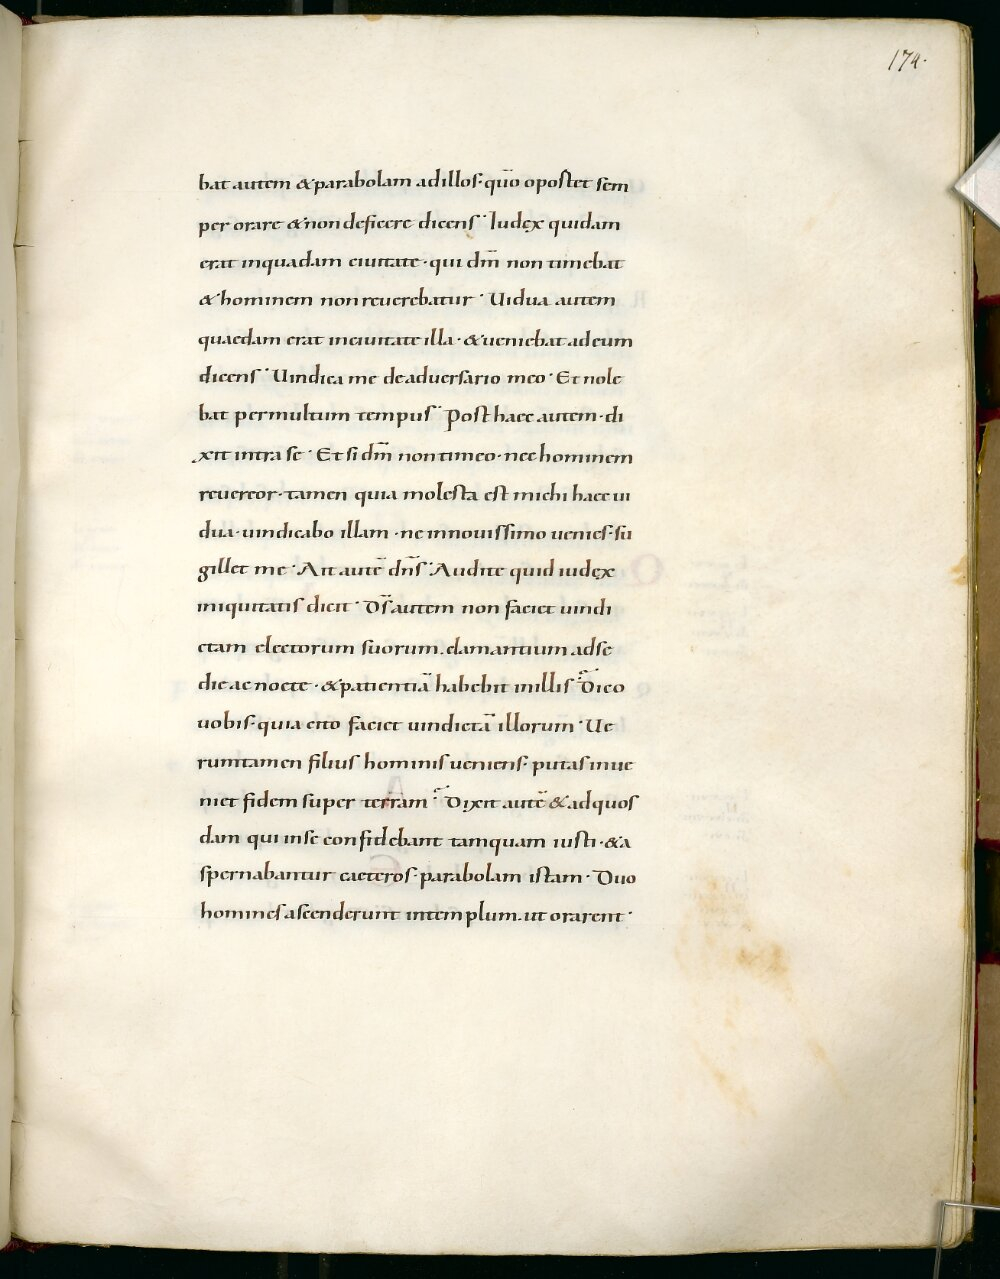 174.
bat autem & parabolam ad illos· qūo opostet sem
per orare & non deficere dicens· Iudęx quidam
erat inquadam ciuitate· qui dm̄ non timebat
& hominem non reuerebatur· Uidua autem
quaedam erat inciuitate illa· & ueniebat ad eum
dicens· Uindica me deaduersario meo· Et nole
bat permultum tempus· Post haec autem· di
xit intra se· Et si dm̄ non timeo· nec hominem
reuereor· tamen quia molesta est michi haec ui
dua· uindicabo illam· ne innouissimo uenies· su
gillet me· Ait autē dn̄s· Audite quid iudęx
iniquitatis dicit· D̄s autem non faciet uindi
ctam electorum suorum. clamantium adse
die ac nocte· & patientiā habebit inillis· Dico
uobis· quia cito faciet uindictā illorum· Ue
rumtamen filius hominis ueniens· putas inue
niet fidem super terram· Dixit autē & adquos
dam qui inse confidebant tamquam iusti· & a
spernabantur caeteros· parabolam istam· Duo
homines ascenderunt intemplum. ut orarent·